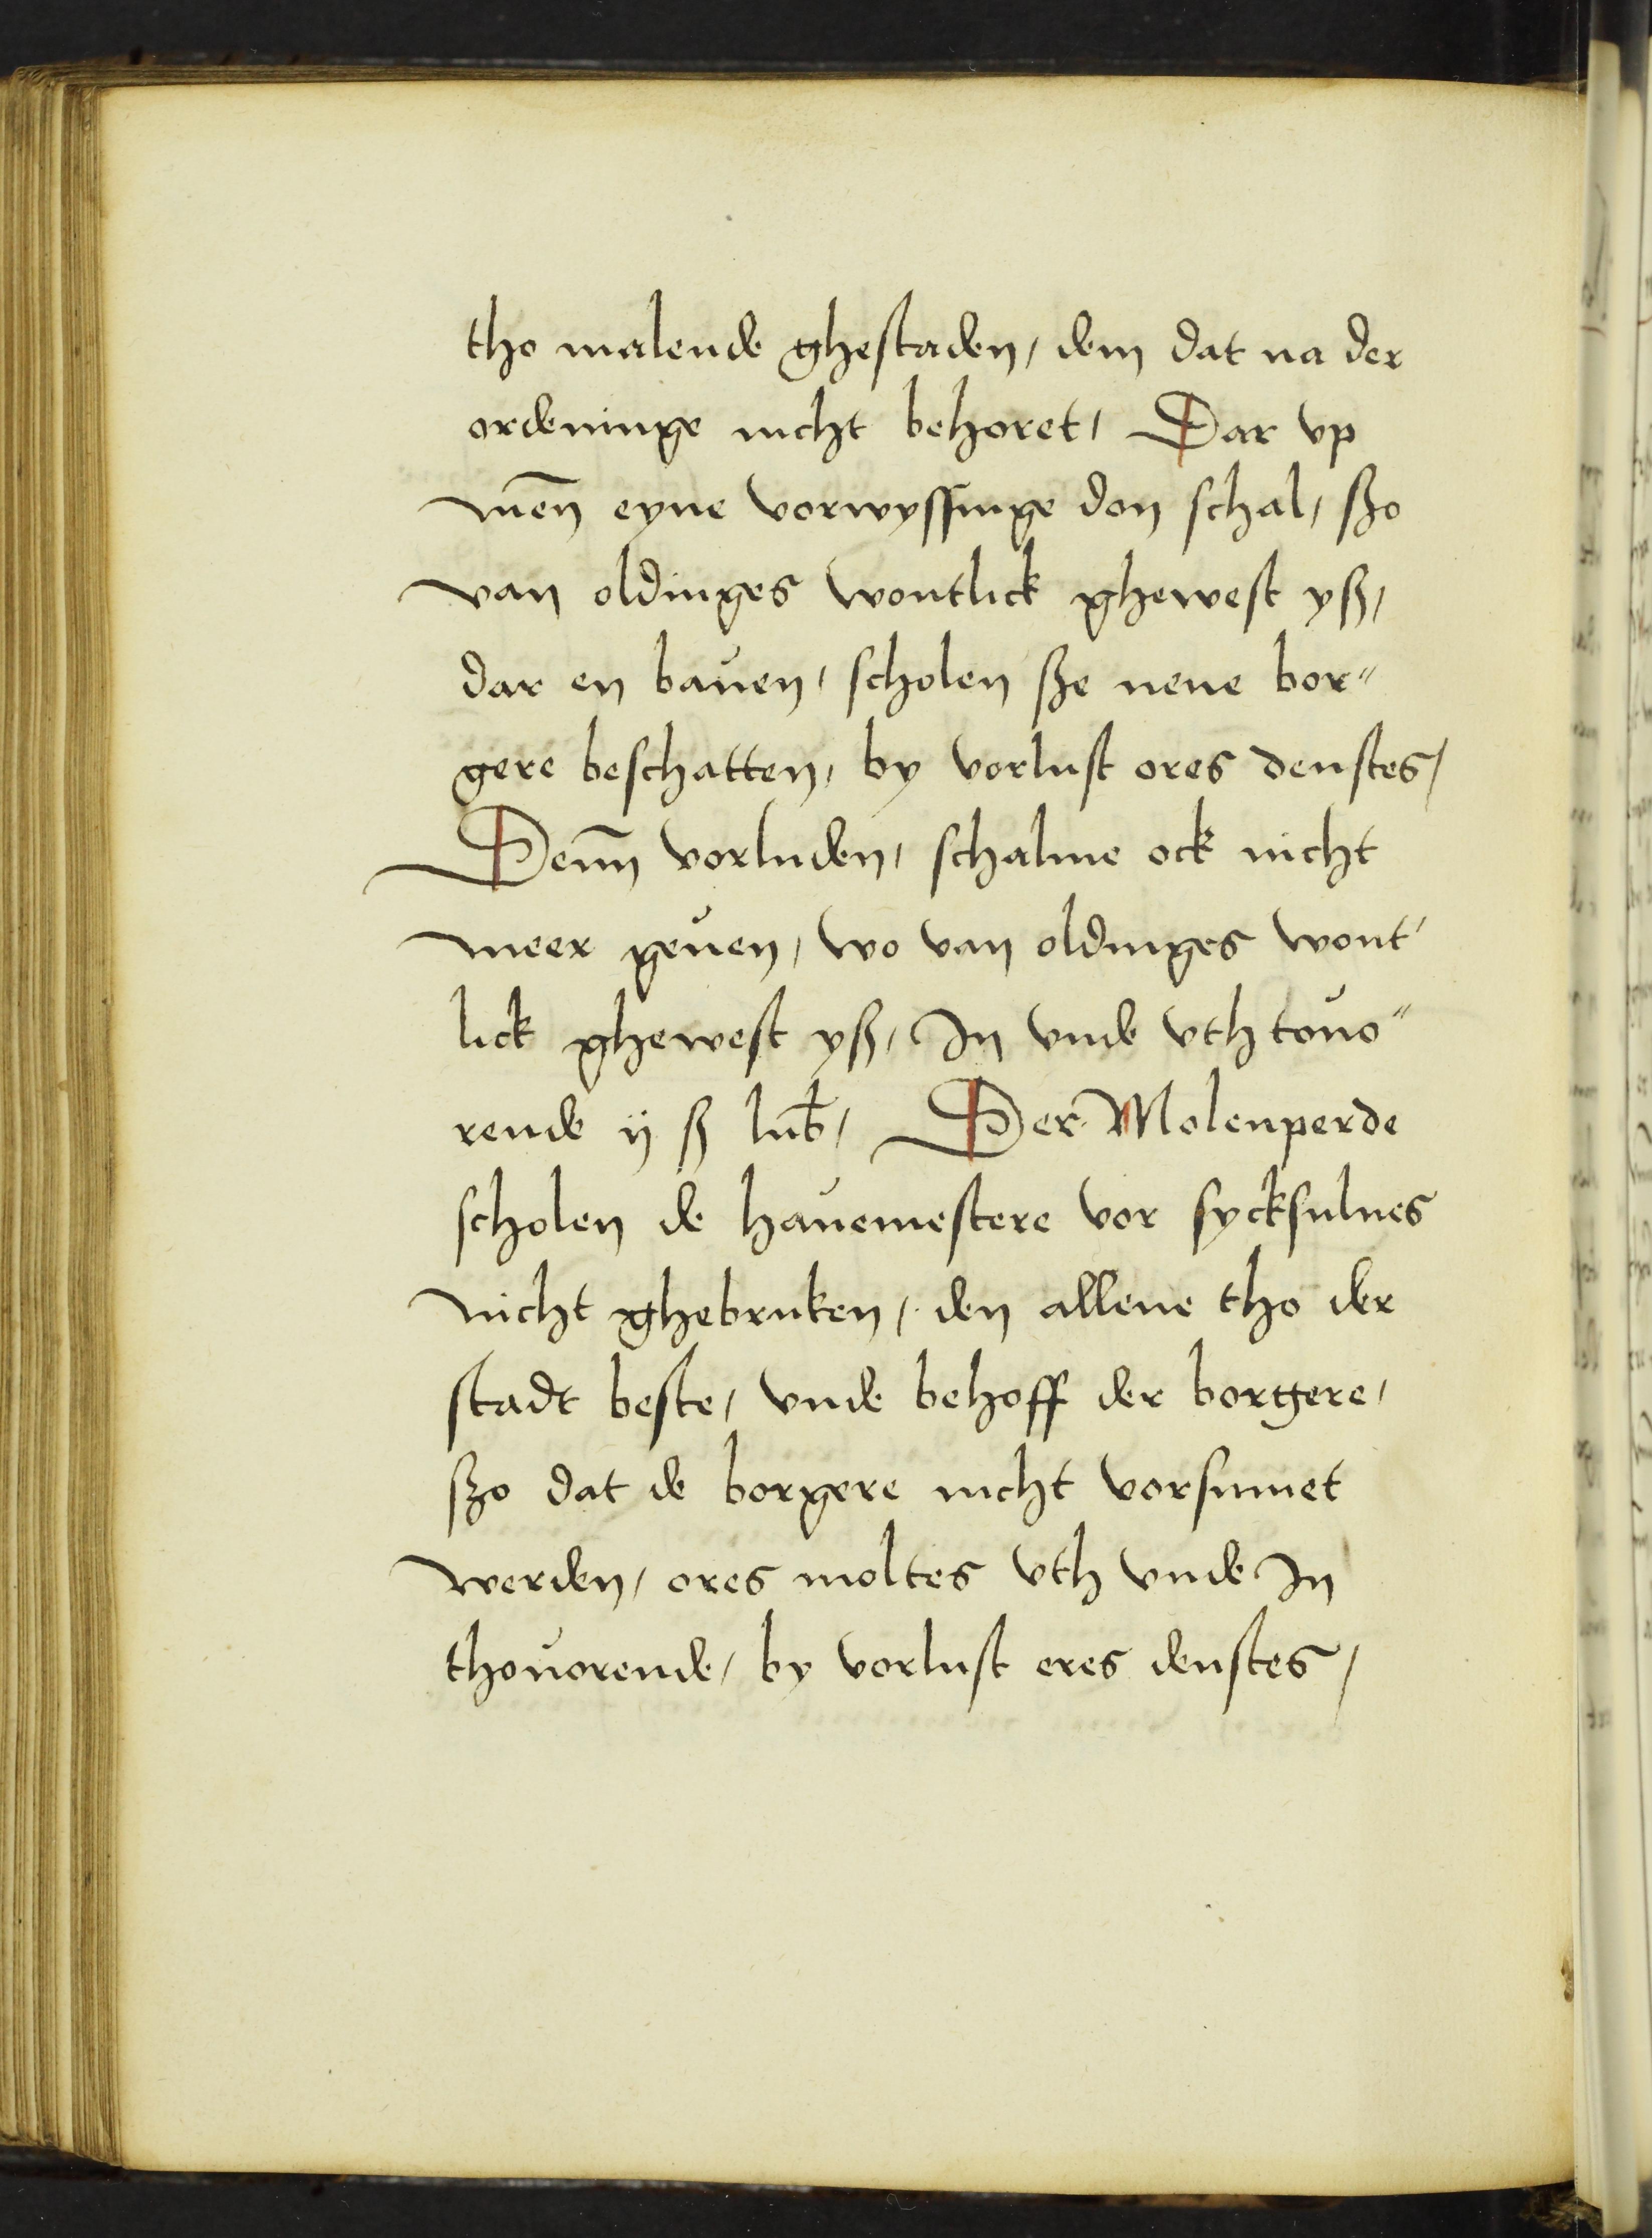 tho malende ghestaden, dem dat na der
ordeninge nicht behoret, Dar vp
men̄ eyne vorwyssinge don schal, ßo
van oldinges wontlick ghewest yß,
dar en bauen, scholen ße nene bor"
gere beschatten, by vorlust ores denstes,
Denn̄ vorluden, schalme ock nicht
meer geuen, wo van oldinges wont'
lick ghewest yß, In vnde vth touo"
rende ij ß lub̄, Der Molenperde
scholen de hauemestere vor sycksulues
nicht ghebruken, den allene tho der
stadt beste, vnde behoff der borgere,
ßo dat de borgere nicht vorsumet
werden, ores moltes vth vnde In
thouorende, by vorlust eres denstes,